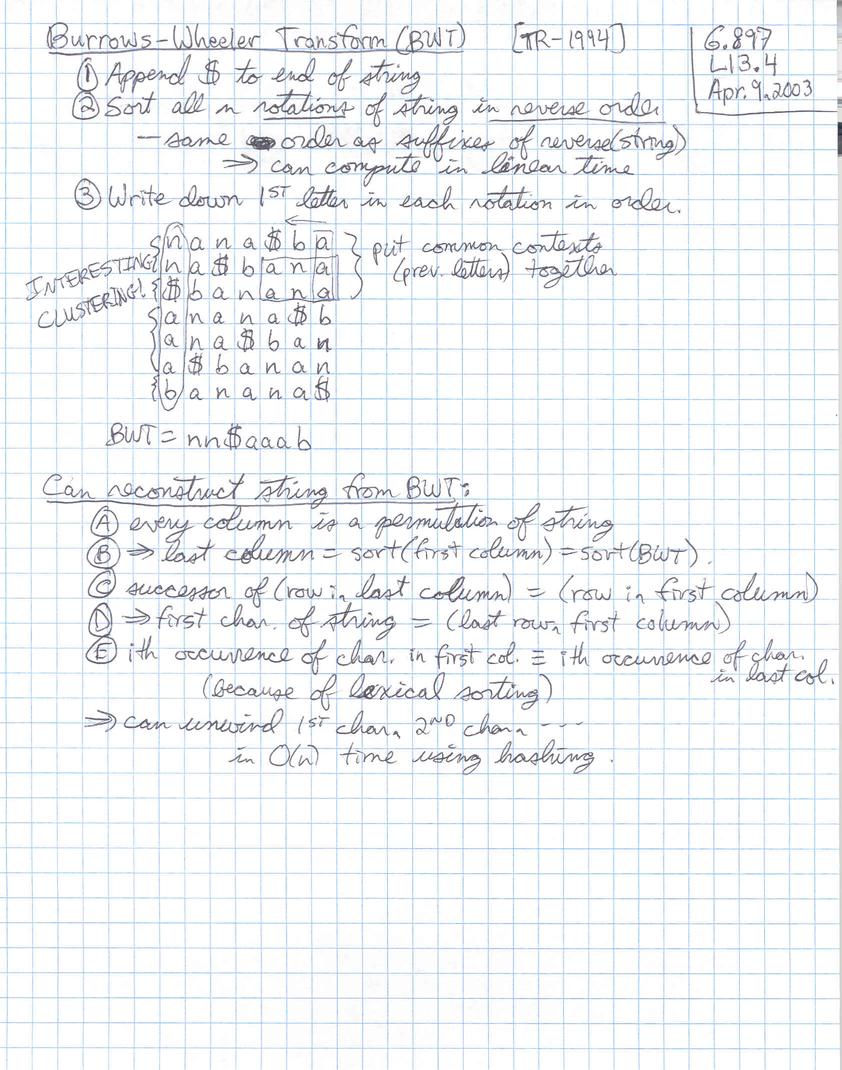 Burrows-Wheeler Transform (BWT) [TR-1994]
6.897
L13.4
Apr. 9, 2003
① Append $ to end of string
② Sort all n rotations of string in reverse order
— same order as suffixes of reverse(string)
⇒ can compute in linear time
③ Write down 1ST letter in each rotation in order.
INTERESTING CLUSTERING!
n a n a $ b a
n a $ b a n a
$ b a n a n a
a n a n a $ b
a n a $ b a n
a $ b a n a n
b a n a n a $
put common contexts
(prev. letters) together
BWT = nn$aaab
Can reconstruct string from BWT:
Ⓐ every column is a permutation of string
Ⓑ ⇒ last column = sort(first column) = sort(BWT).
Ⓒ successor of (row i, last column) = (row i, first column)
Ⓓ ⇒ first char. of string = (last row, first column)
Ⓔ ith occurrence of char. in first col. ≡ ith occurrence of char.
in last col.
(because of lexical sorting)
⇒ can unwind 1ST char, 2ND char, ...
in O(n) time using hashing.